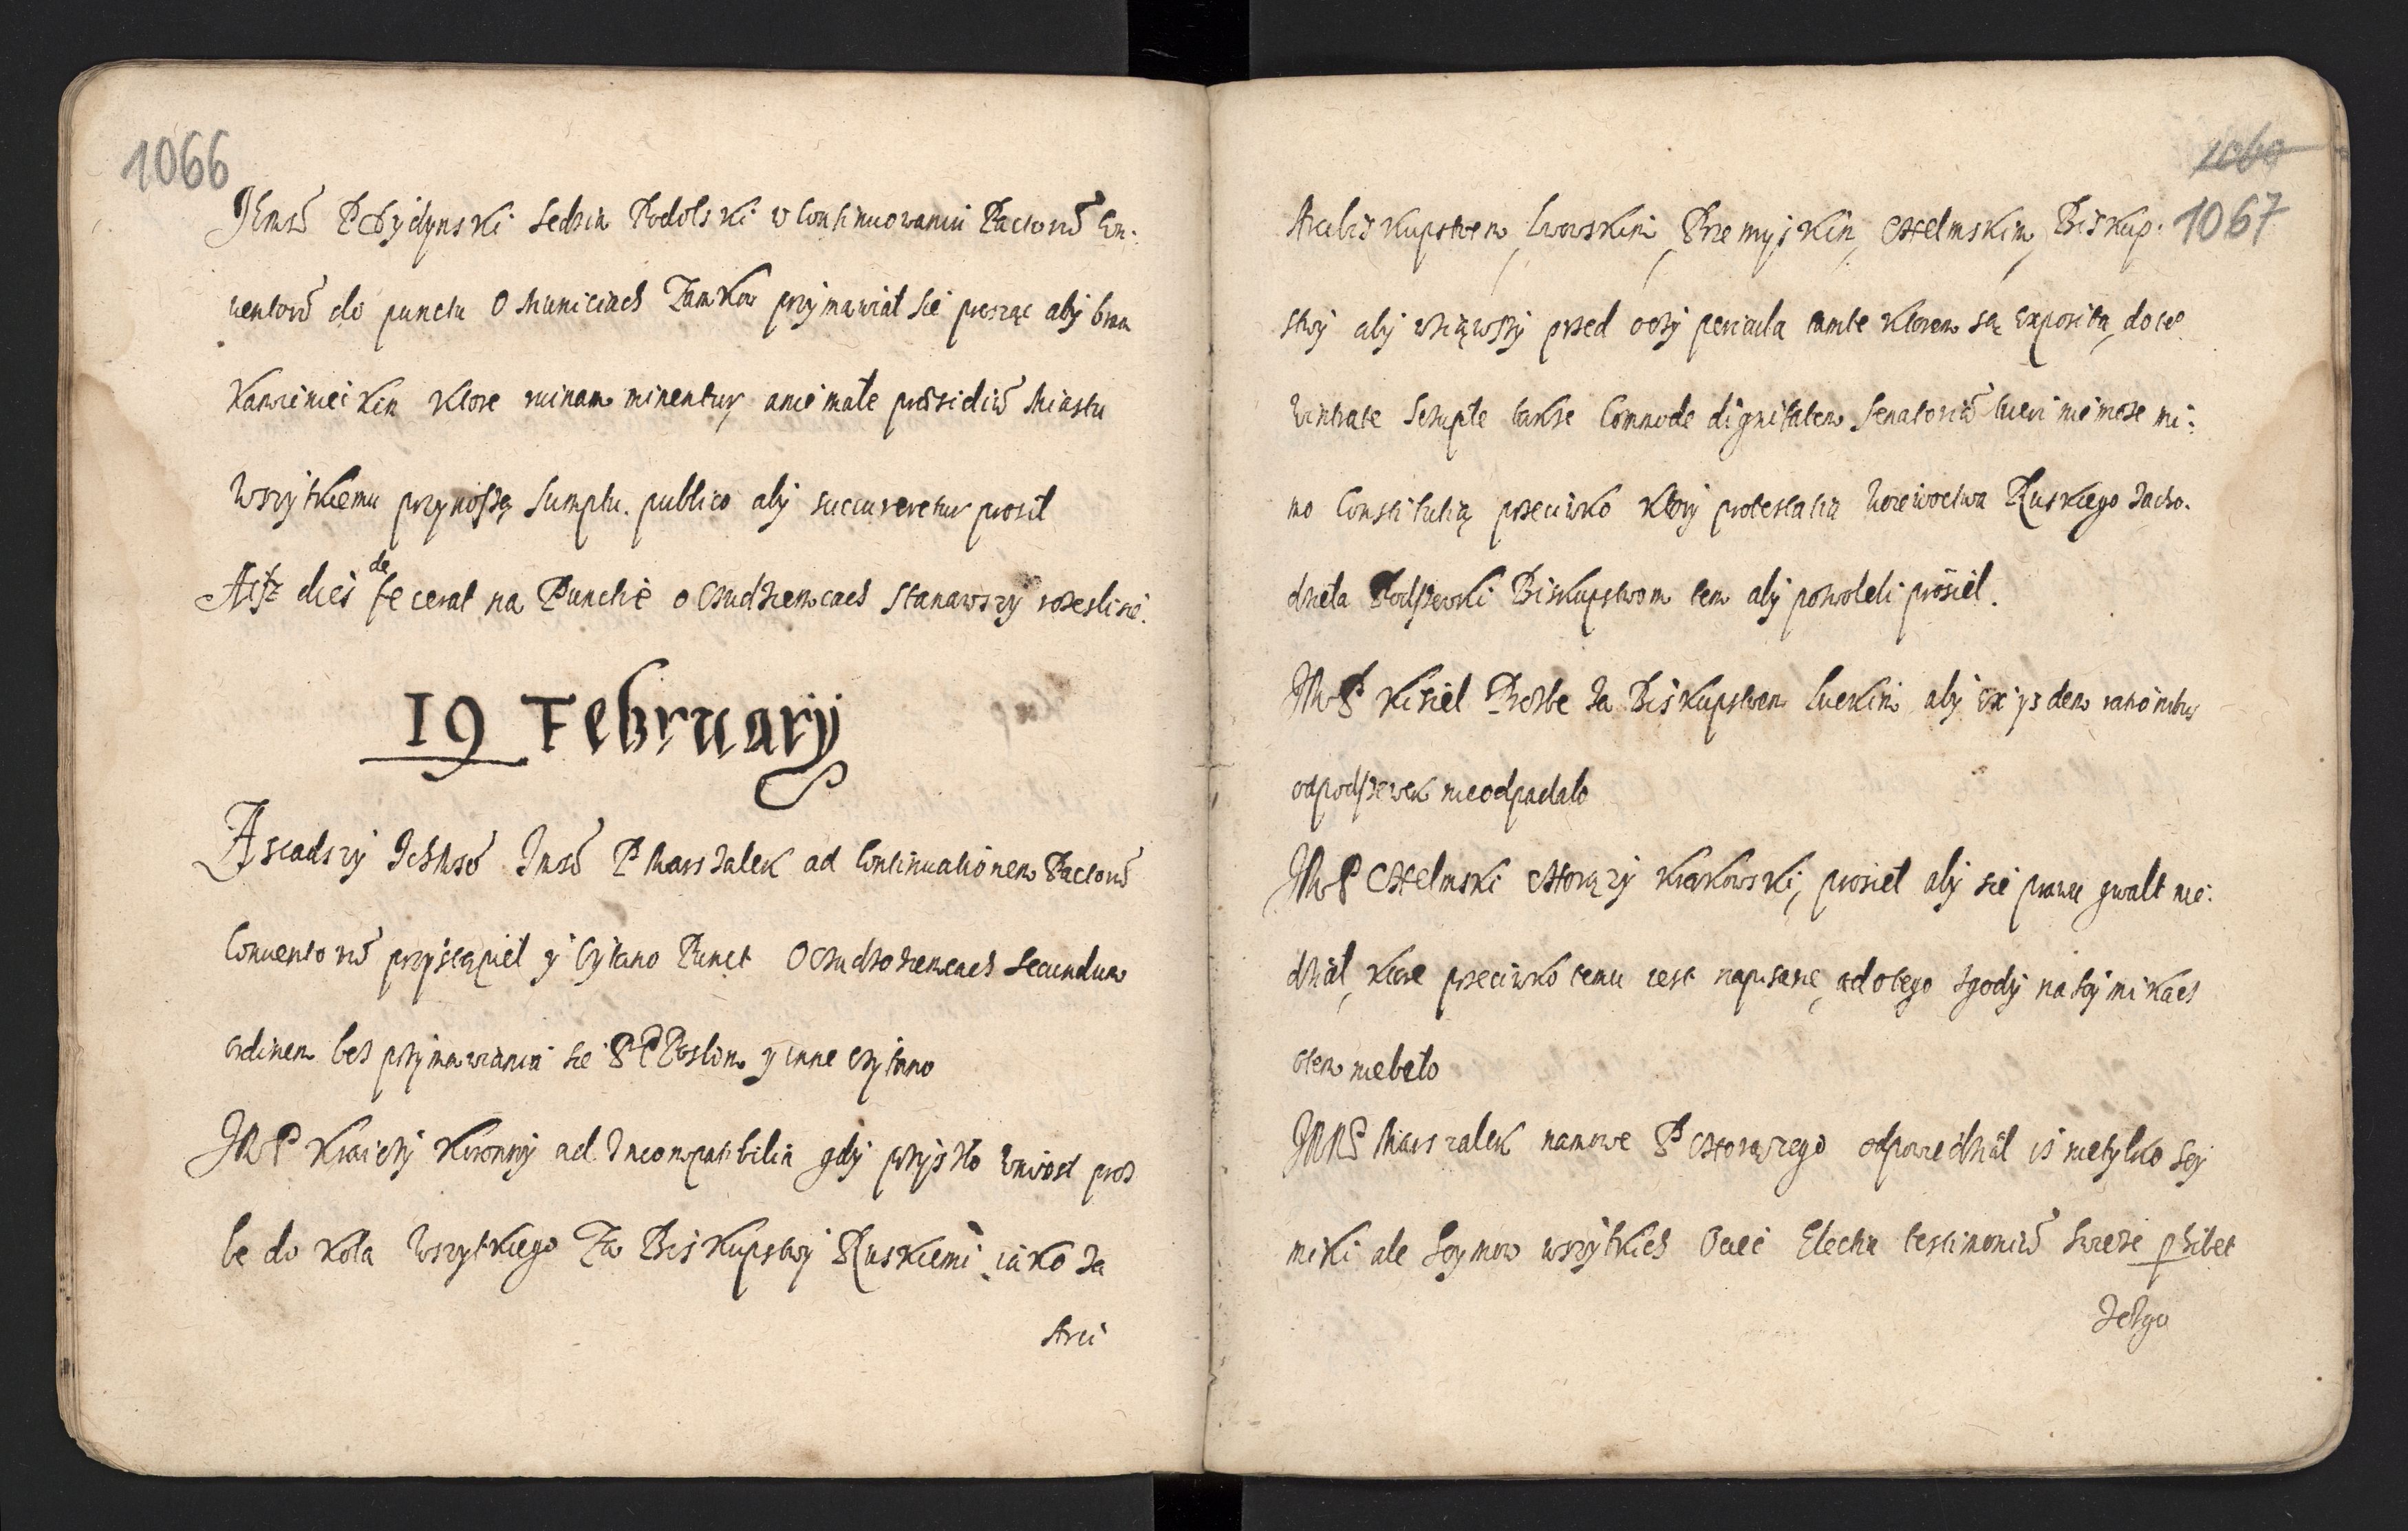 1066
Jemsć P Bydynski Sedzia Podolski w Continuowaniu Pactorũ Con:
uentorũ do punctu O Municiach Zamkow przymawiał sie prosząc aby bra
Kamienieckiu Ktore ruinam minentur a nie małe præsidiũ Miastu
Wszytkiemu przynoszą Sumptu publico aby succureretur prosił
Atqz dies de fecerat na Punctie o Cudziemcach Stanąwszy rozeslisie.
19 February
Zsiadszy Ichmsć Jmsć P Marszalek ad Continuationem Pactorũ
Conuentorũ przystąpiel y Cytano Punct O Cudzoziemcach Secundum
ordinem bez przymawiania sie PP Posłow y inne czytano
JMP Kraiczy Koronny ad Incompatibilia gdy przyszło wniosł proz
be do koła Wszytkiego Za Biskupstwy Ruskiemi iako za
Arci
1060
1067
Arcibiskupstwem, Lwowskim, Przemyskim, CHelmskim, Biskup:
stwy aby wziąwszy przed oczy pericula tamte Ktorem są Exposita, do tego
Intrate Sczupłe takze Commode dignitatem Senatoriũ tueri niemoze mi:
mo Constitutią przeciwko Ktory protestatia Woiewoctwa Ruskiego zacho.
dzieła Podszewki Biskupstwom tem aby pozwoleli prosieł.
JMP Kisiel Prozbe za Biskupstwem Luckim aby Ex ijsdem rationibus
od podszewek nieodpadało
JMP CHelmski CHorąży Krakowski, prosieł aby sie prawu gwałt nie:
dział, Ktore przeciwko temu iest napisane, ado tego zgody na Seymikach
otem niebeło
JMP Marszalek na mowe P CHorążego odpowiedział isz nietylko Sey
miki ale Seymow wszytkich Oycc Electia testimoniũ swieże phibet
Zezgo